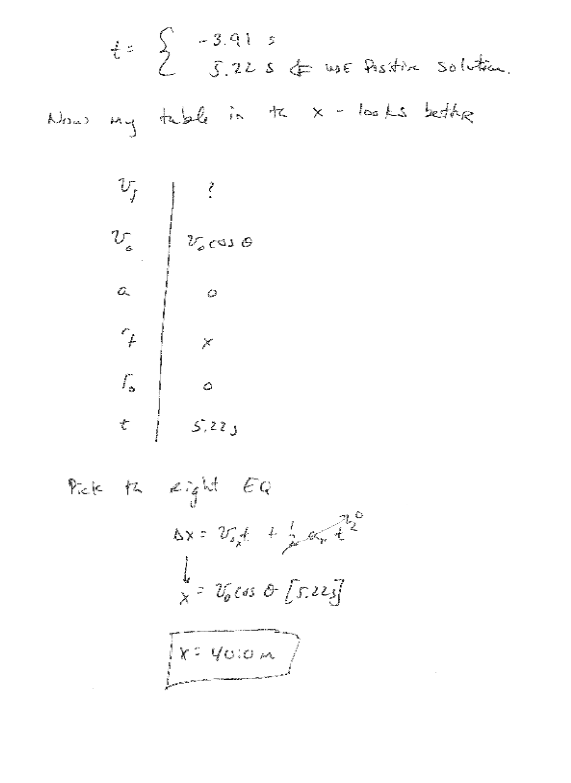 t = { -3.91 s
5.22 s ⇐ USE Positive solution.
Now my table in th x - looks better
v_f | ?
v_o | v_o cos θ
a | 0
r_f | x
r_o | 0
t | 5.22s
Pick th right EQ
Δx = v_ox t + 1/2 a_x t^2 0
↓
x = v_o cos θ [5.22s]
x = 40.0 m